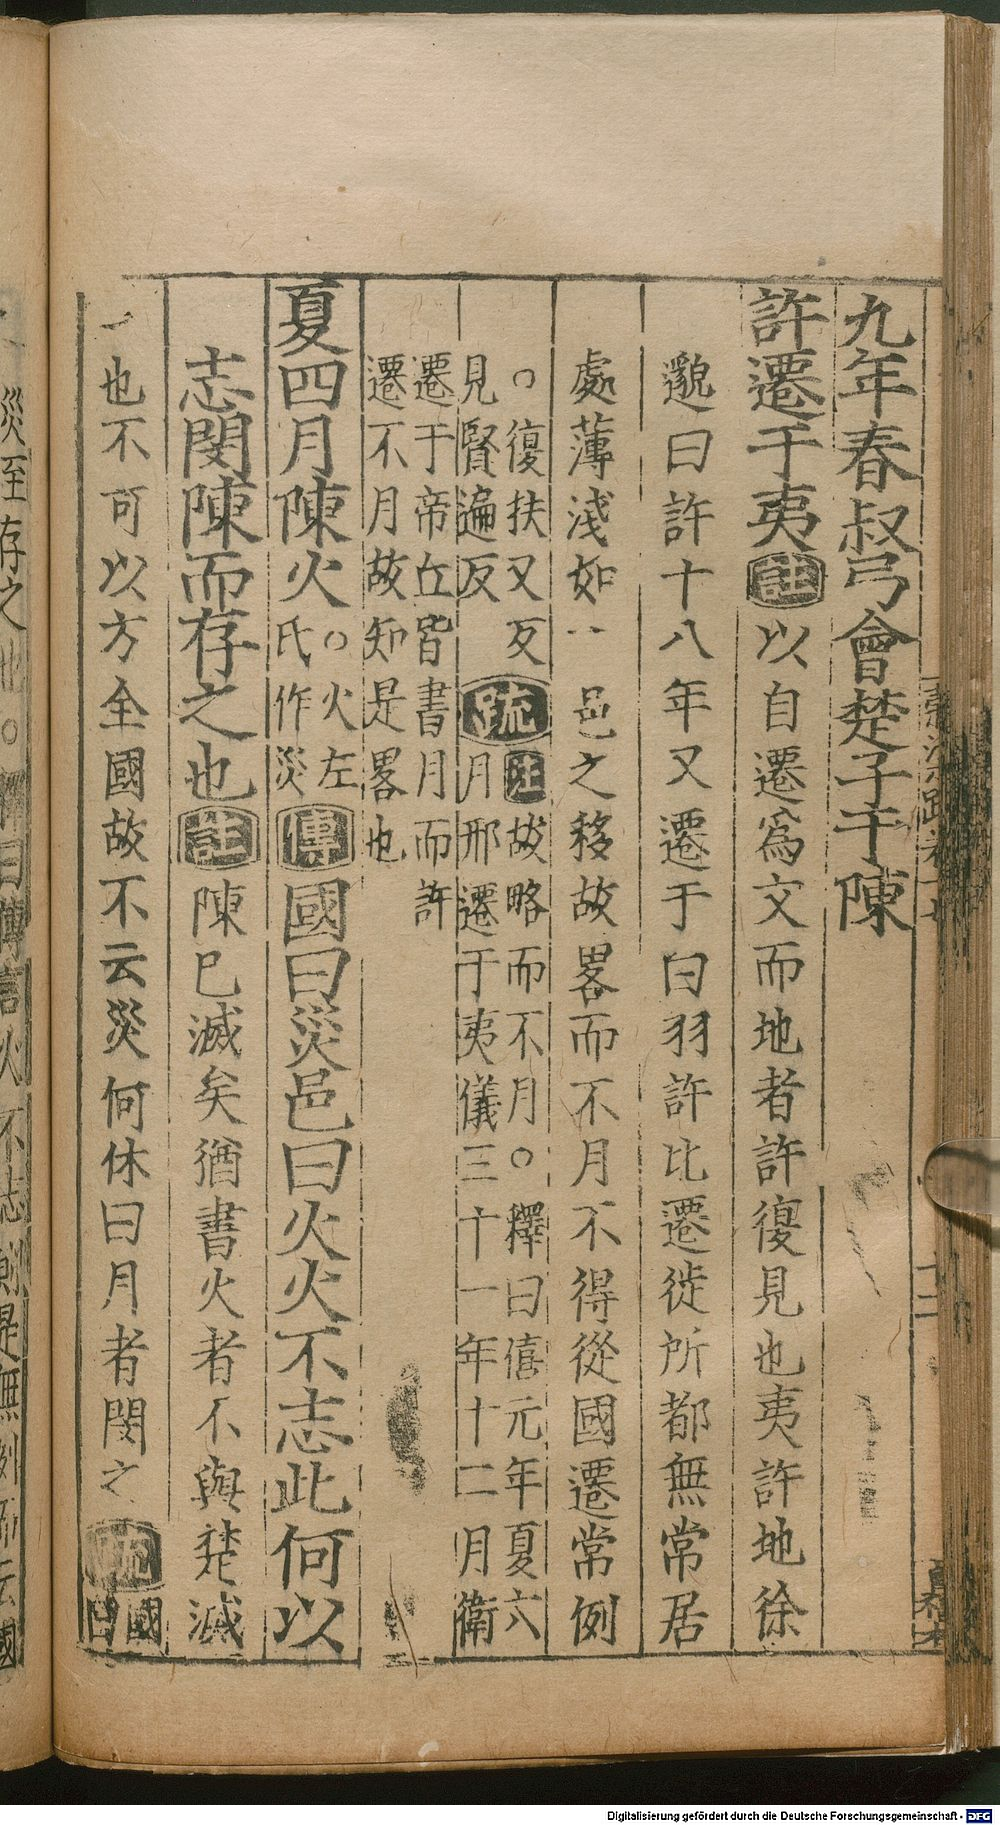 九年春叔弓會楚子于陳
許遷于夷註以自遷爲文而地者許復見也夷許地徐
邈曰許十八年又遷于白羽許比遷徙所都無常居
處薄淺如一邑之移故畧而不月不得從國遷常例
○復扶又反
見賢遍反
疏
注故略而不月○釋曰僖元年夏六
月邢遷于夷儀三十一年十二月衛
遷于帝丘皆書月而許
遷不月故知是畧也
夏四月陳火
○火左
氏作災
傳國曰災邑曰火火不志此何以
志閔陳而存之也註陳已滅矣猶書火者不與楚滅
也不可以方全國故不云災何休曰月者閔之疏
國
曰
災至存之也○釋曰傳言火不志則是無例而云國
Digitalisierung gefördert durch die Deutsche Forschungsgemeinschaft - DFG